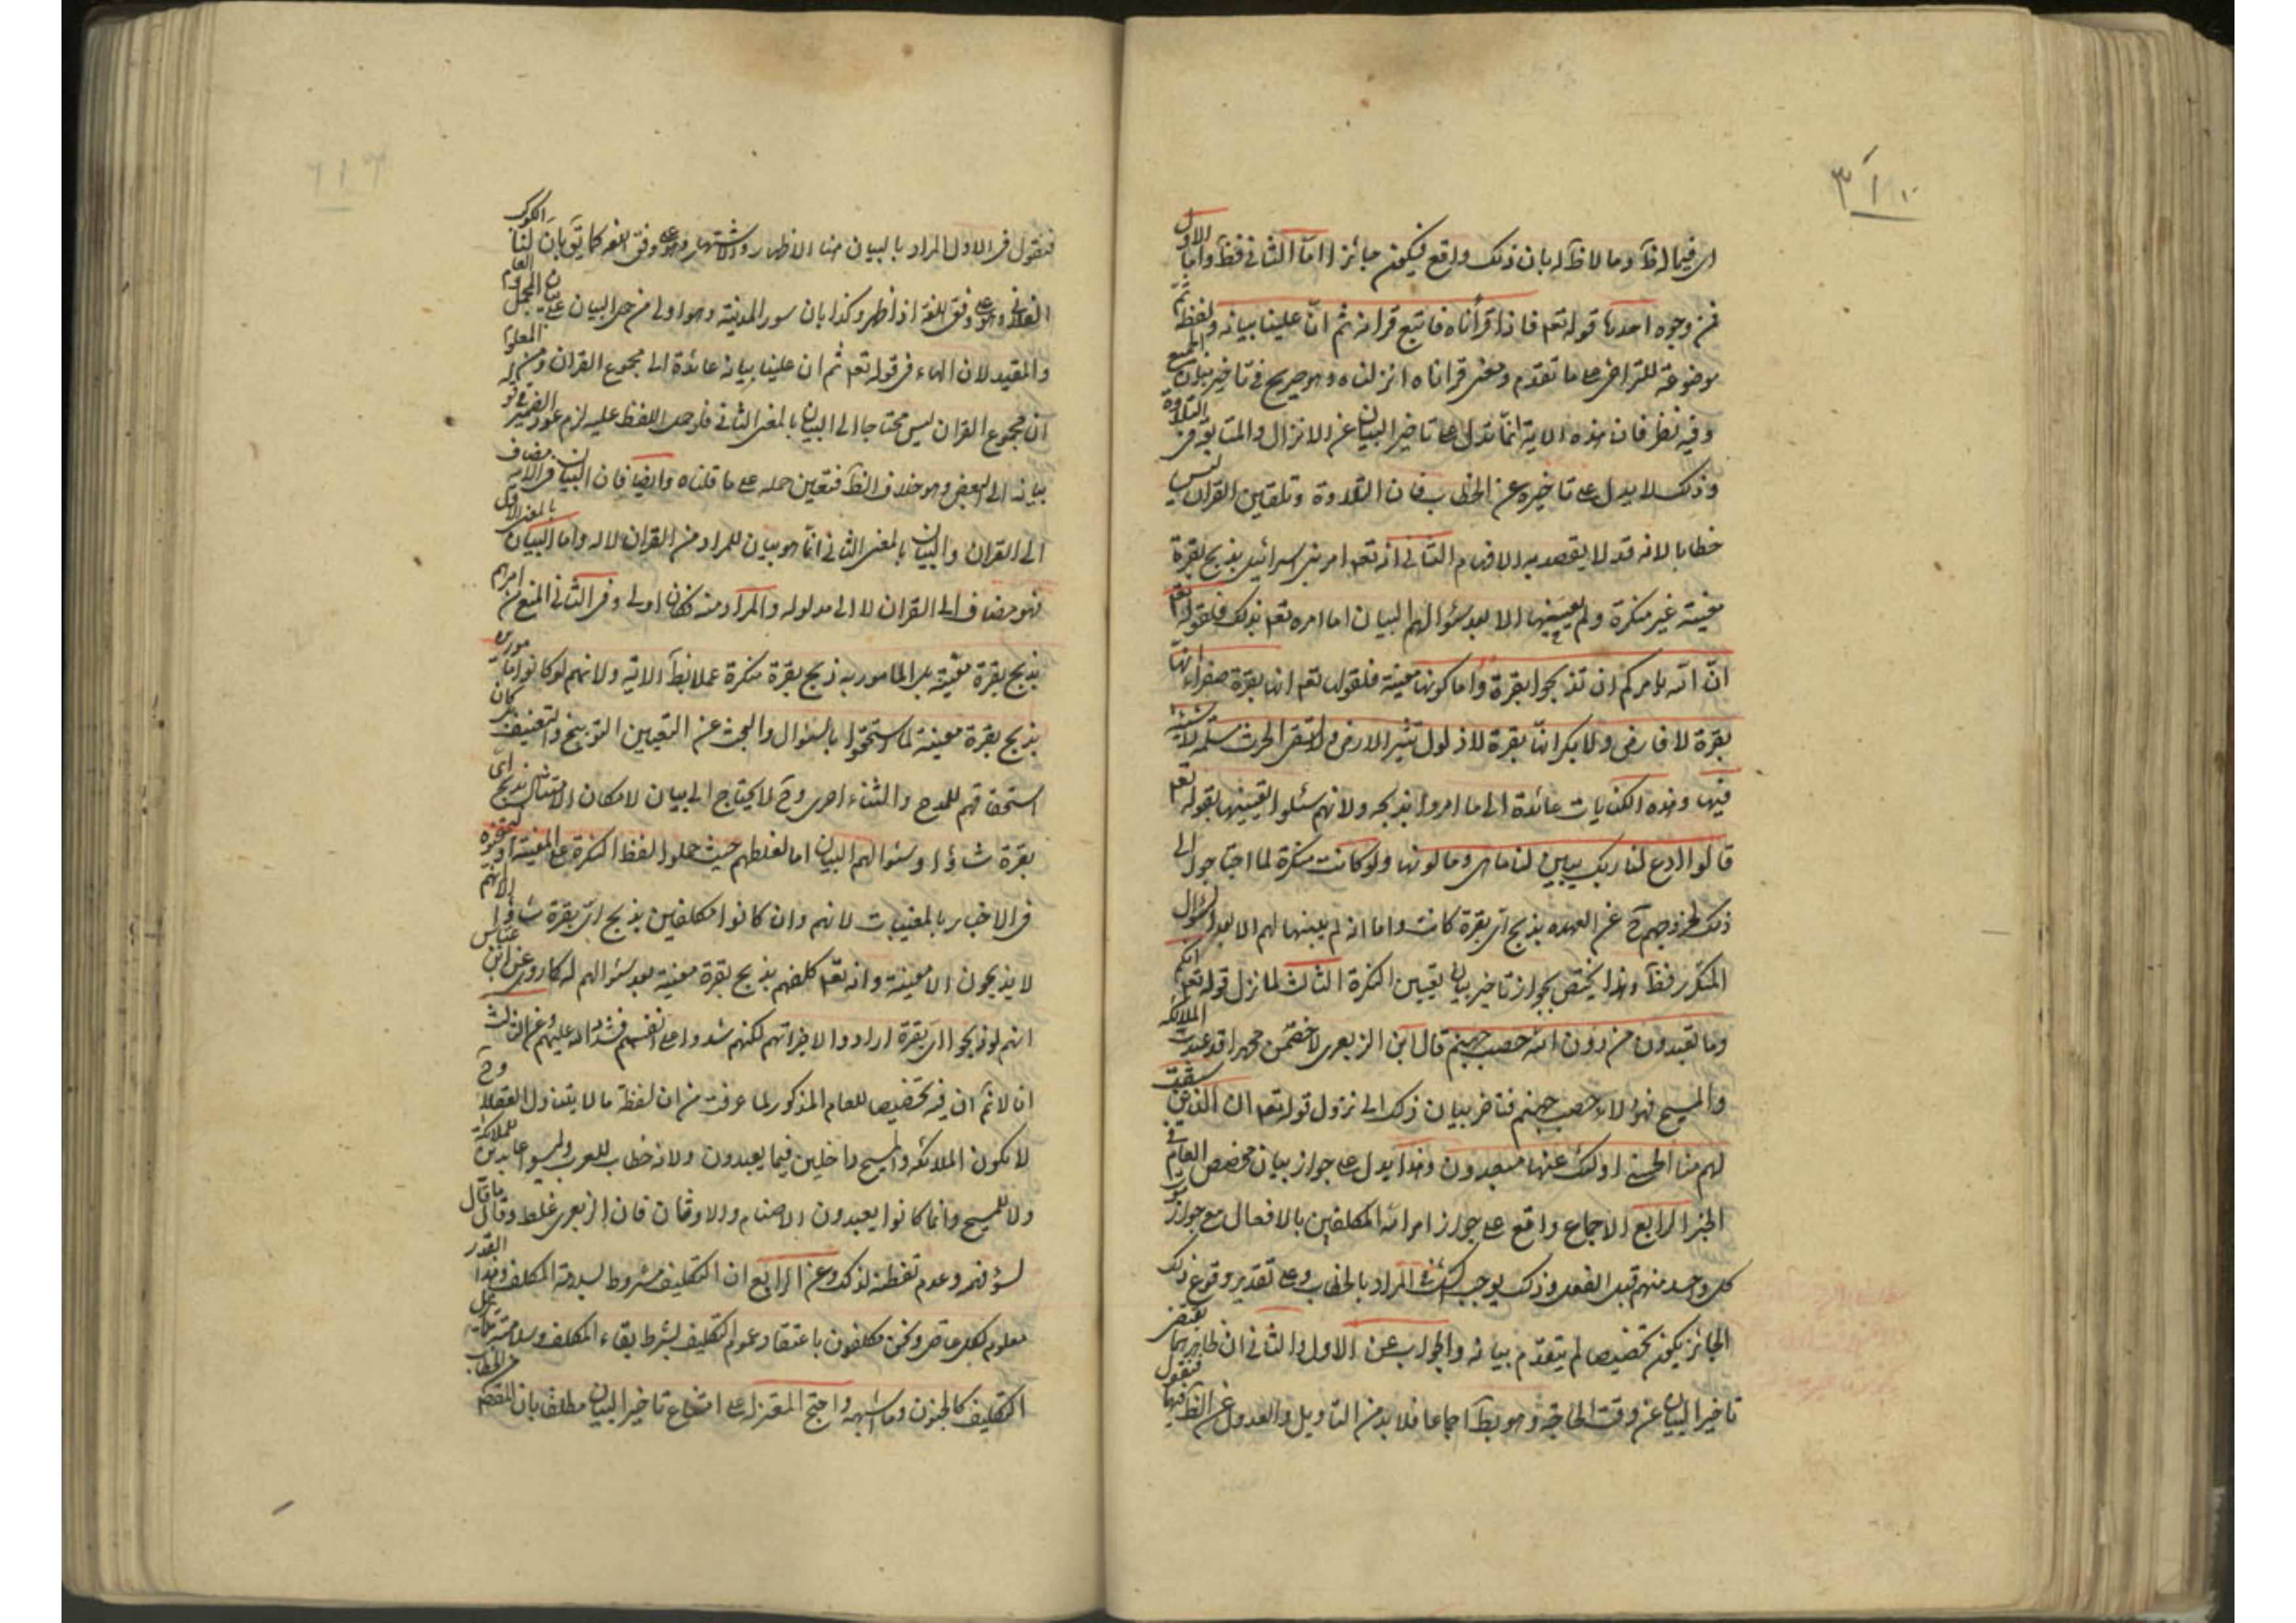 اى فيما له ظ وما لا ظ له بان ذلك واقع فيكون جائزا اما الثانى فظ واما الاول
فمن وجوه احدها قوله تعم فاذا قرأناه فاتبع قرانه ثم ان علينا بيانه ولفظة ثم
موضوعة للتراخى على ما تقدم ومعنى قراناه انزلناه وهو صريح فى تاخير بيان الجميع
وفيه نظر فان هذه الاية انما تدل على تاخير البيان عن الانزال والمتابعة فى التلاوة
وذلك لا يدل على تاخيره عن الخطاب فان التلاوة وتلقين القران ليس
خطابا لانه قد لا يقصد به الافهام الثانى انه تعم امر بنى اسرائيل بذبح بقرة
معينة غير منكرة ولم يعينها الا بعد سئوالهم البيان اما امره تعم بذلك فلقوله تعم
ان الله يامركم ان تذبحوا بقرة واما كونها معينة فلقوله تعم انها بقرة صفراء انها
بقرة لا فارض ولا بكر انها بقرة لا ذلول تثير الارض ولا تسقى الحرث مسلمة لا شية
فيها وهذه الكنايات عائدة الى ما امروا بذبحه ولانهم سئلوا تعيينها بقوله تعم
قالوا ادع لنا ربك يبين لنا ما هى وما لونها ولو كانت منكرة لما احتاجوا الى
ذلك لخروجهم ح عن العهده بذبح اى بقرة كانت واما انه لم يعينها لهم الا بعد السؤال
المتكرر فظ وهذا يختص بجواز تاخير بيان تعيين النكرة الثالث لما نزل قوله تعم انكم
وما تعبدون من دون الله حصب جهنم قال ابن الزبعرى لاخصمن محمدا قد عبدت الملائكة
والمسيح فهؤلاء حصب جهنم فتاخر بيان ذلك الى نزول قوله تعم ان الذين سبقت
لهم منا الحسنى اولئك عنها مبعدون وهذا يدل على جواز بيان مخصص العام فى
الخبر الرابع الاجماع واقع على جواز امر الله المكلفين بالافعال مع جواز موت
كل واحد منهم قبل الفعل وذلك يوجب الشك فى المراد بالخطاب وعلى تقدير وقوع ذلك
الجائز يكون تخصيص لم يتقدم بيانه والجواب عن الاول والثانى ان ظاهرهما يقتضى
تاخير البيان عن وقت الحاجة وهو بط اجماعا فلا بد من التاويل والعدول عن الظ فيهما فنقول
فنقول فى الاول المراد بالبيان هنا الاظهار والاشتهار وهو على وفق اللغه كما يق بان لنا الكوكب
الفلانى وهو على وفق اللغة اذا ظهر وكذا بان سور المدينة وهو اولى من حمل البيان على بيان المجمل والعام
والمقيد لان الهاء فى قوله تعم ثم ان علينا بيانه عائدة الى مجموع القران ومن المعلوم
ان مجموع القران ليس محتاجا الى البيان بالمعنى الثانى فلو حمل اللفظ عليه لزم عود الضمير فى قوله
بيانه الى البعض وهو خلاف الظ فتعين حمله على ما قلناه وايضا فان البيان فى الاية مضاف
الى القران والبيان بالمعنى الثانى انما هو بيان للمراد من القران لا له واما البيان بالمعنى الاول
فهو مضاف الى القران لا الى مدلوله والمراد منه فكان اولى وفى الثانى المنع من امرهم
بذبح بقرة معينة بل المامور به ذبح بقرة منكرة عملا بظ الاية ولانهم لو كانوا مامورين
بذبح بقرة معينة لما استحقوا بالسئوال والبحث عن التعيين التوبيخ والتعنيف بل كان
استحقاقهم للمدح والثناء احرى وح لا يحتاج الى بيان لامكان الامتثال بذبح اى
بقرة شاؤا وسئوالهم البيان اما لغلطهم حيث حملوا لفظ النكرة على المعينة او
فى الاخبار بالمغيبات لانهم وان كانوا مكلفين بذبح اى بقرة شاؤا الا انهم
لا يذبحون الا معينة وانه تعم كلفهم بذبح بقرة معينة بعد سئوالهم له كما روى عن ابن عباس
انهم لو ذبحوا اى بقرة ارادوا لاجزاتهم لكنهم شددوا على انفسهم فشدد الله عليهم وعن الثالث
انا لا نم ان فيه تخصيص للعام المذكور لما عرفت من ان لفظة ما لا يتناول العقلاء وح
لا يكون الملائكة والمسيح داخلين فيما يعبدون ولانه خطاب للعرب وليسوا عابدين للملائكة
ولا للمسيح وانما كانوا يعبدون الاصنام والاوثان فان الزبعرى غلط وقال ما قال
لسؤ فهمه وعدم تفطنه لذلك وعن الرابع ان التكليف مشروط بسلامة المكلف وهذا القدر
معلوم لكل عاقل ونحن مكلفون باعتقاد عموم التكليف بشرط بقاء المكلف وسلامته
التكليف كالجنون وما اشبهه واحتج المعتزلة على امتناع تاخير البيان مطلقا بان المقصود من الخطاب